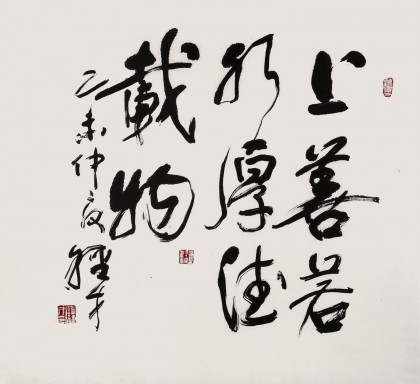 上善若
水厚德
載物
乙未仲夏